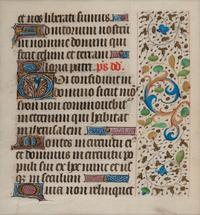 et nos liberati sumus.
Adiutorium nostrum
in nomine domini qui
fecit celum et terram
Gloria patri. ps dd.
Qui confidunt in
domino sicut mons
syon non commovebit
in eternum qui habitat
in iherusalem
Montes in circuitu eius
et dominus in circuitu po
puli sui ex hoc nunc et us
que in seculum
Quia non relinquet